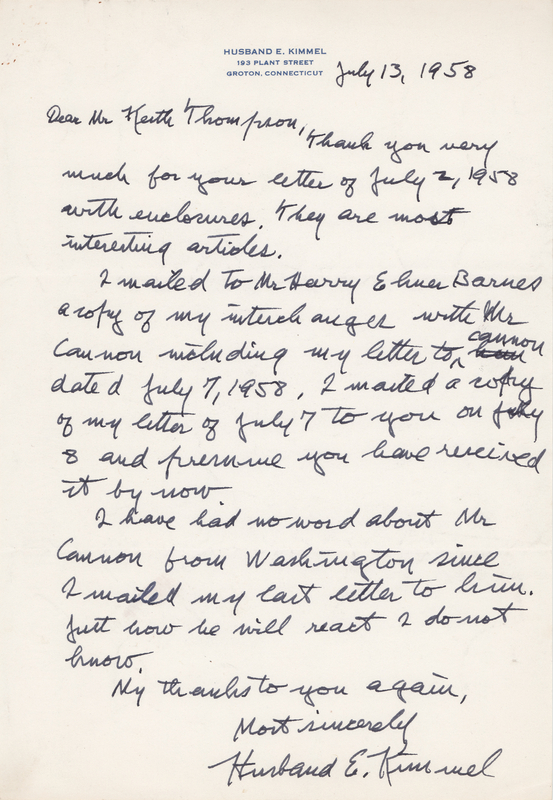 HUSBAND E. KIMMEL
193 PLANT STREET
GROTON, CONNECTICUT
July 13, 1958
Dear Mr Keith Thompson,
Thank you very
much for your letter of July 2, 1958
with enclosures. They are most
interesting articles.
I mailed to Mr Harry Elmer Barnes
a copy of my interchanges with Mr
Cannon
Cannon including my letter to him
dated July 7, 1958. I mailed a copy
of my letter of July 7 to you on July
8 and presume you have received
it by now
I have had no word about Mr
Cannon from Washington since
I mailed my last letter to him.
Just how he will react I do not
know.
My thanks to you again,
Most sincerely
Husband E. Kimmel